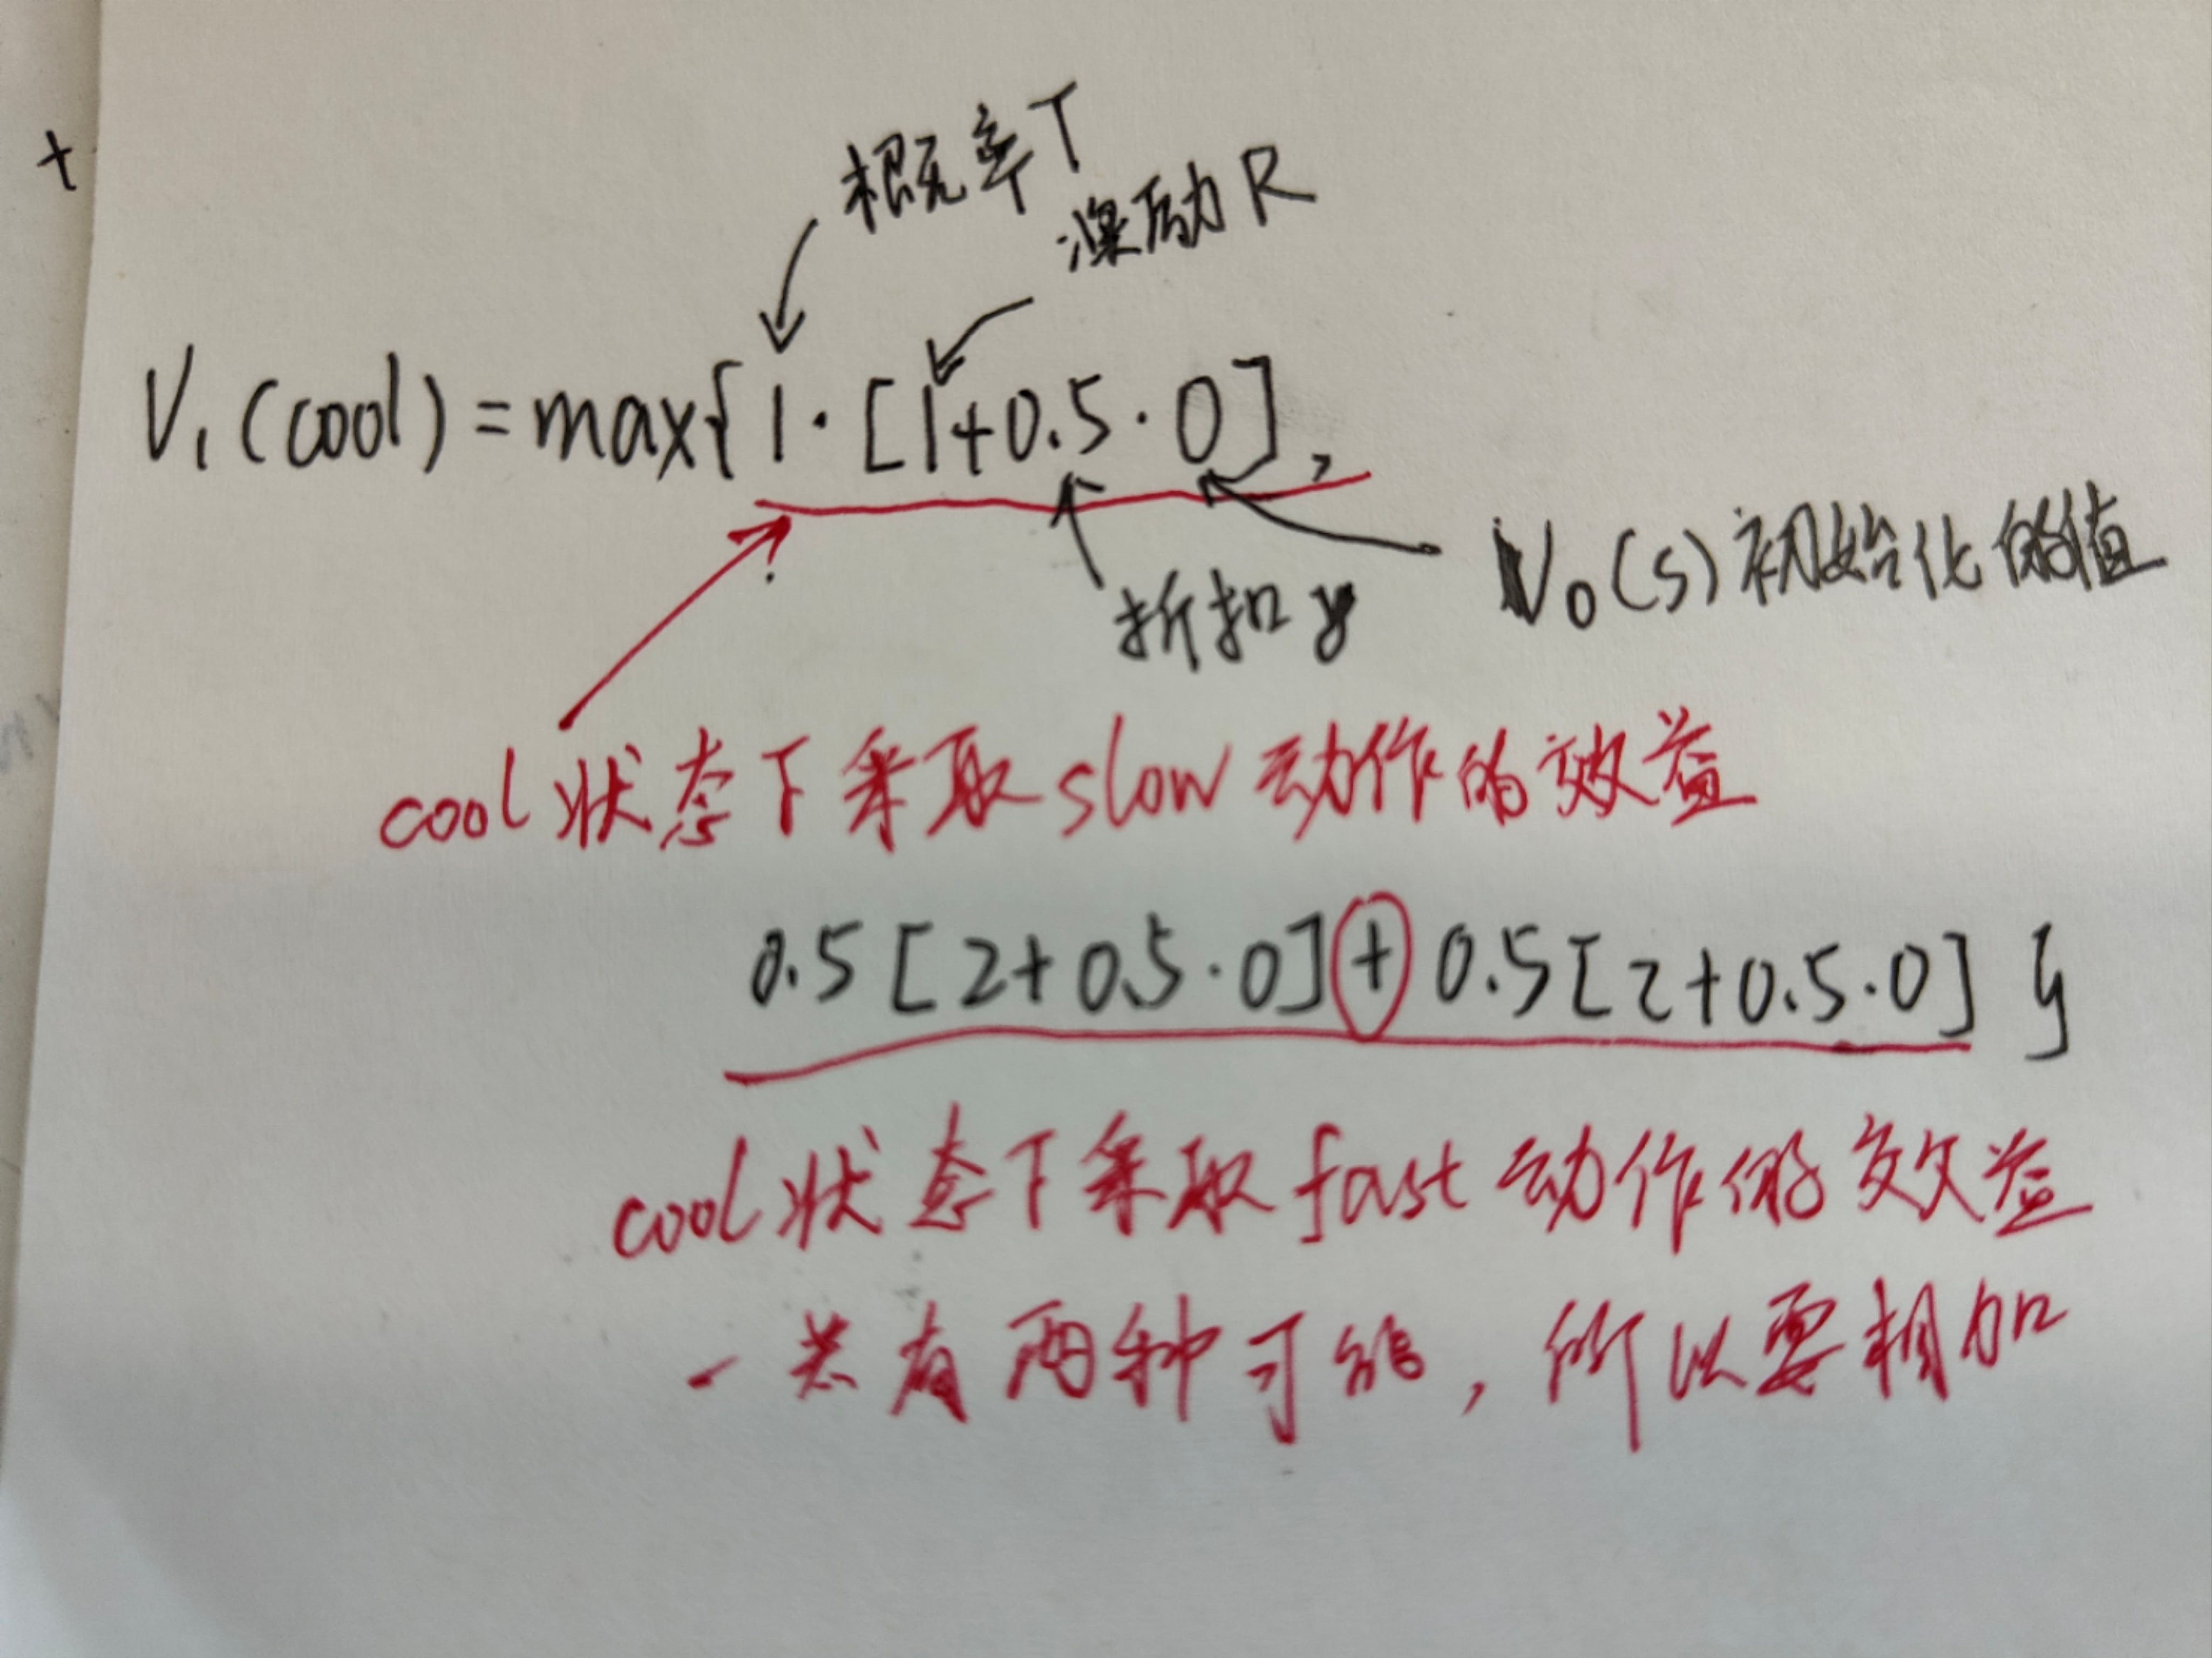 +
概率T
激励R
V₁(cool)=max{1·[1+0.5·0],
折扣γ
V₀(s)初始化的值
cool状态下采取slow动作的效益
0.5[2+0.5·0]+0.5[2+0.5·0]}
cool状态下采取fast动作的效益
一共有两种可能，所以要相加